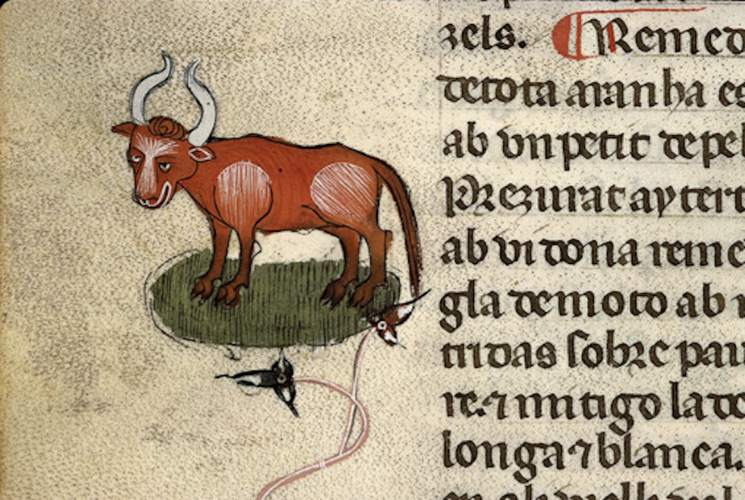 zels. Remed
de tota aranha es
ab vn petit de pel
Prezurat ay tert
ab vi dona reme
gla de moto ab
tridas sobre pau
re. ⁊ mitigo la do
longa ⁊ blanca.